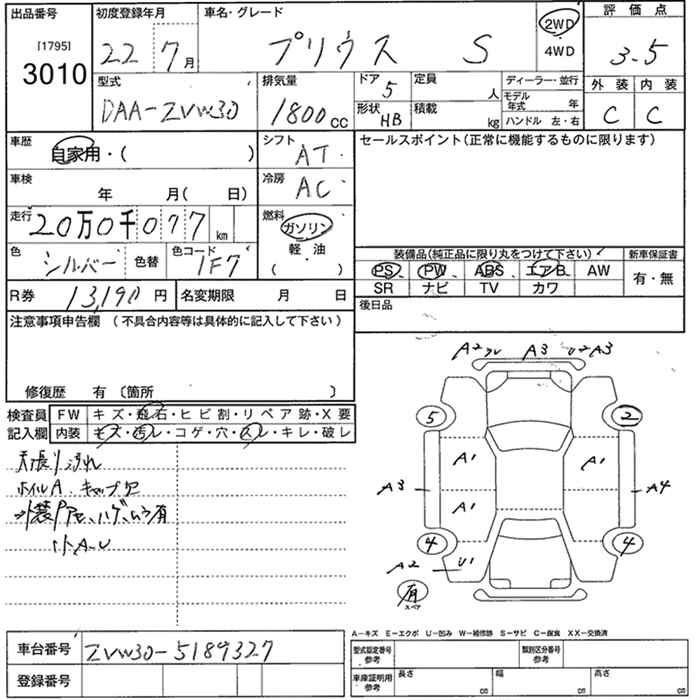 出品番号 初度登録年月 車名・グレード 2WD 評価点
[1795] 22 7月 プリウス S 4WD 3.5
3010
型式 排気量 ドア 5 定員 人 ディーラー・並行 外装 内装
DAA-ZVW30 1800cc 形状 HB 積載 kg モデル年式 年 C C
ハンドル 左・右
車歴 自家用・( ) シフト AT セールスポイント(正常に機能するものに限ります)
車検 年 月( 日) 冷房 AC
走行 20万0千077 km 燃料 ガソリン
軽・油
( )
色 シルバー 色替 色コード 1F7 装備品(純正品に限り丸をつけて下さい) 新車保証書
PS PW ABS エアB AW 有・無
SR ナビ TV カワ
R券 13,190円 名変期限 月 日 後日品
注意事項申告欄 (不具合内容等は具体的に記入して下さい)
修復歴 有 〔箇所 〕
検査員 FW キズ・飛石・ヒビ割・リペア跡・X要
記入欄 内装 キズ・汚レ・コゲ・穴・スレ・キレ・破レ
天張り汚れ
ホイルA キャップ欠
外装 ハゲ、ムラ有
小A-U
A2 A3 U2 A3
5 2
A1 A1
A3 A4
A1
4 4
A2 U1
有
スペア
A-キズ E-エクボ U-凹み W-補修跡 S-サビ C-腐食 XX-交換済
車台番号 ZVW30-5189327 型式指定番号 参考 類別区分番号 参考
登録番号 車庫証明用 参考 長さ cm 幅 cm 高さ cm